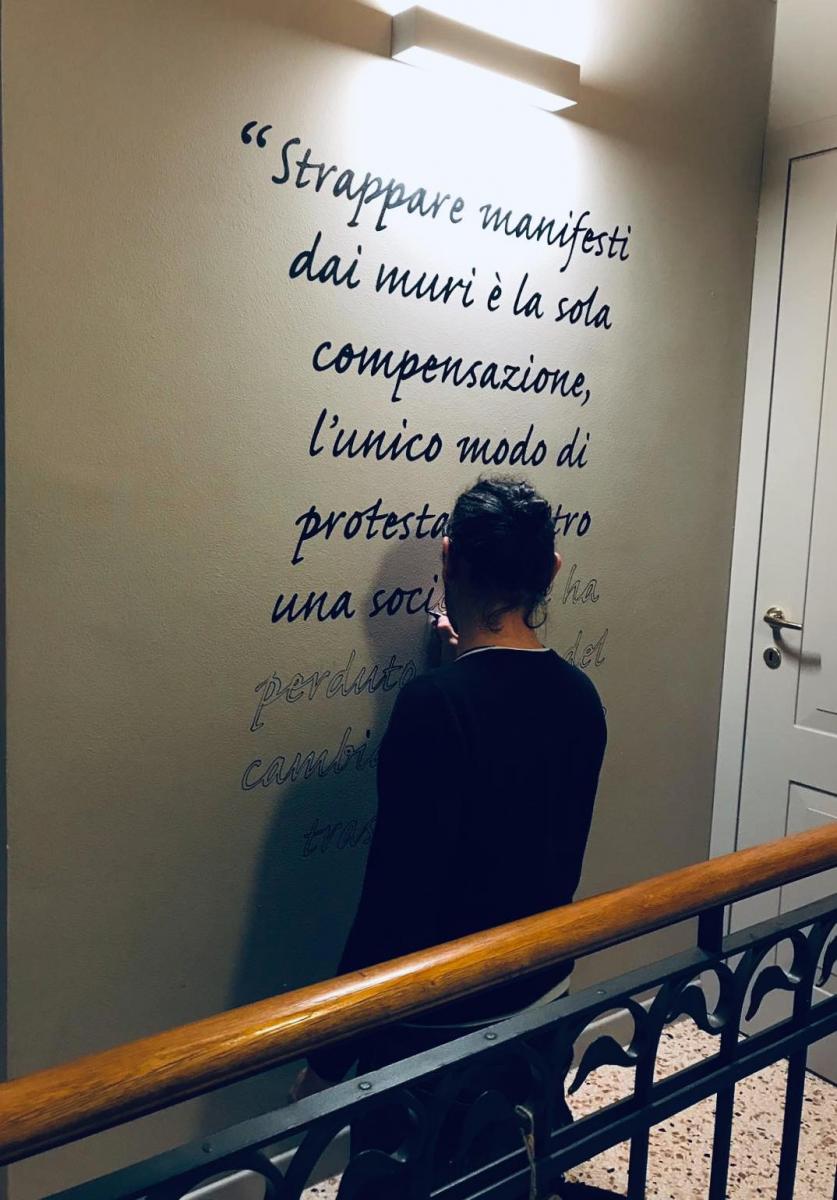 “Strappare manifesti
dai muri è la sola
compensazione,
l’unico modo di
protesta tro
una soci ha
perduto del
cambi
tras